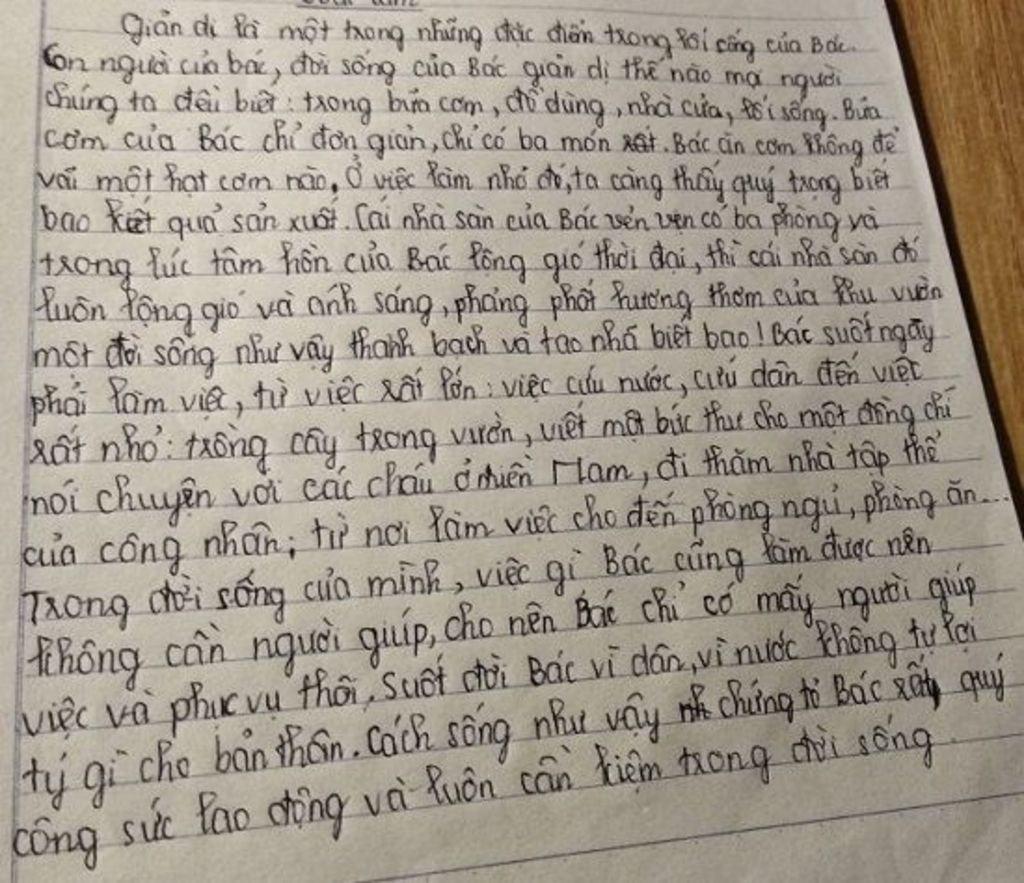 Giản dị là một trong những đặc điển trong lối cống của Bác.
Con người của bác, đời sống của Bác giản dị thế nào mọi người
chúng ta đều biết: trong bữa cơm, đồ dùng, nhà cửa, lối sống. Bữa
cơm của Bác chỉ đơn giản, chỉ có ba món. Bác ăn cơm không để
vãi một hạt cơm nào, Ở việc làm nhỏ đó, ta càng thấy quý trọng biết
bao kết quả sản xuất. Cái nhà sàn của Bác vẻn vẹn có ba phòng và
trong lúc tâm hồn của Bác lộng gió thời đại, thì cái nhà sàn đó
luôn lộng gió và ánh sáng, phảng phất hương thơm của khu vườn
một đời sống như vậy thanh bạch và tao nhã biết bao! Bác suốt ngày
phải làm việc, từ việc rất lớn: việc cứu nước, cứu dân đến việc
rất nhỏ: trồng cây trong vườn, viết một bức thư cho một đồng chí
nói chuyện với các cháu ở miền Nam, đi thăm nhà tập thể
của công nhân; từ nơi làm việc cho đến phòng ngủ, phòng ăn...
Trong đời sống của mình, việc gì Bác cũng làm được nên
không cần người giúp, cho nên Bác chỉ có mấy người giúp
việc và phục vụ thôi. Suốt đời Bác vì dân, vì nước không tư lợi
tý gì cho bản thân. Cách sống như vậy chứng tỏ Bác rất quý
công sức lao động và luôn cần kiệm trong đời sống.